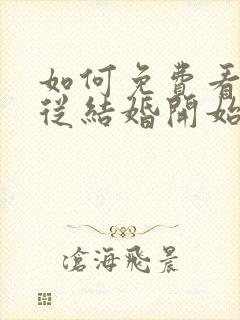 如何免費看
從結婚開始
滄海飛晨